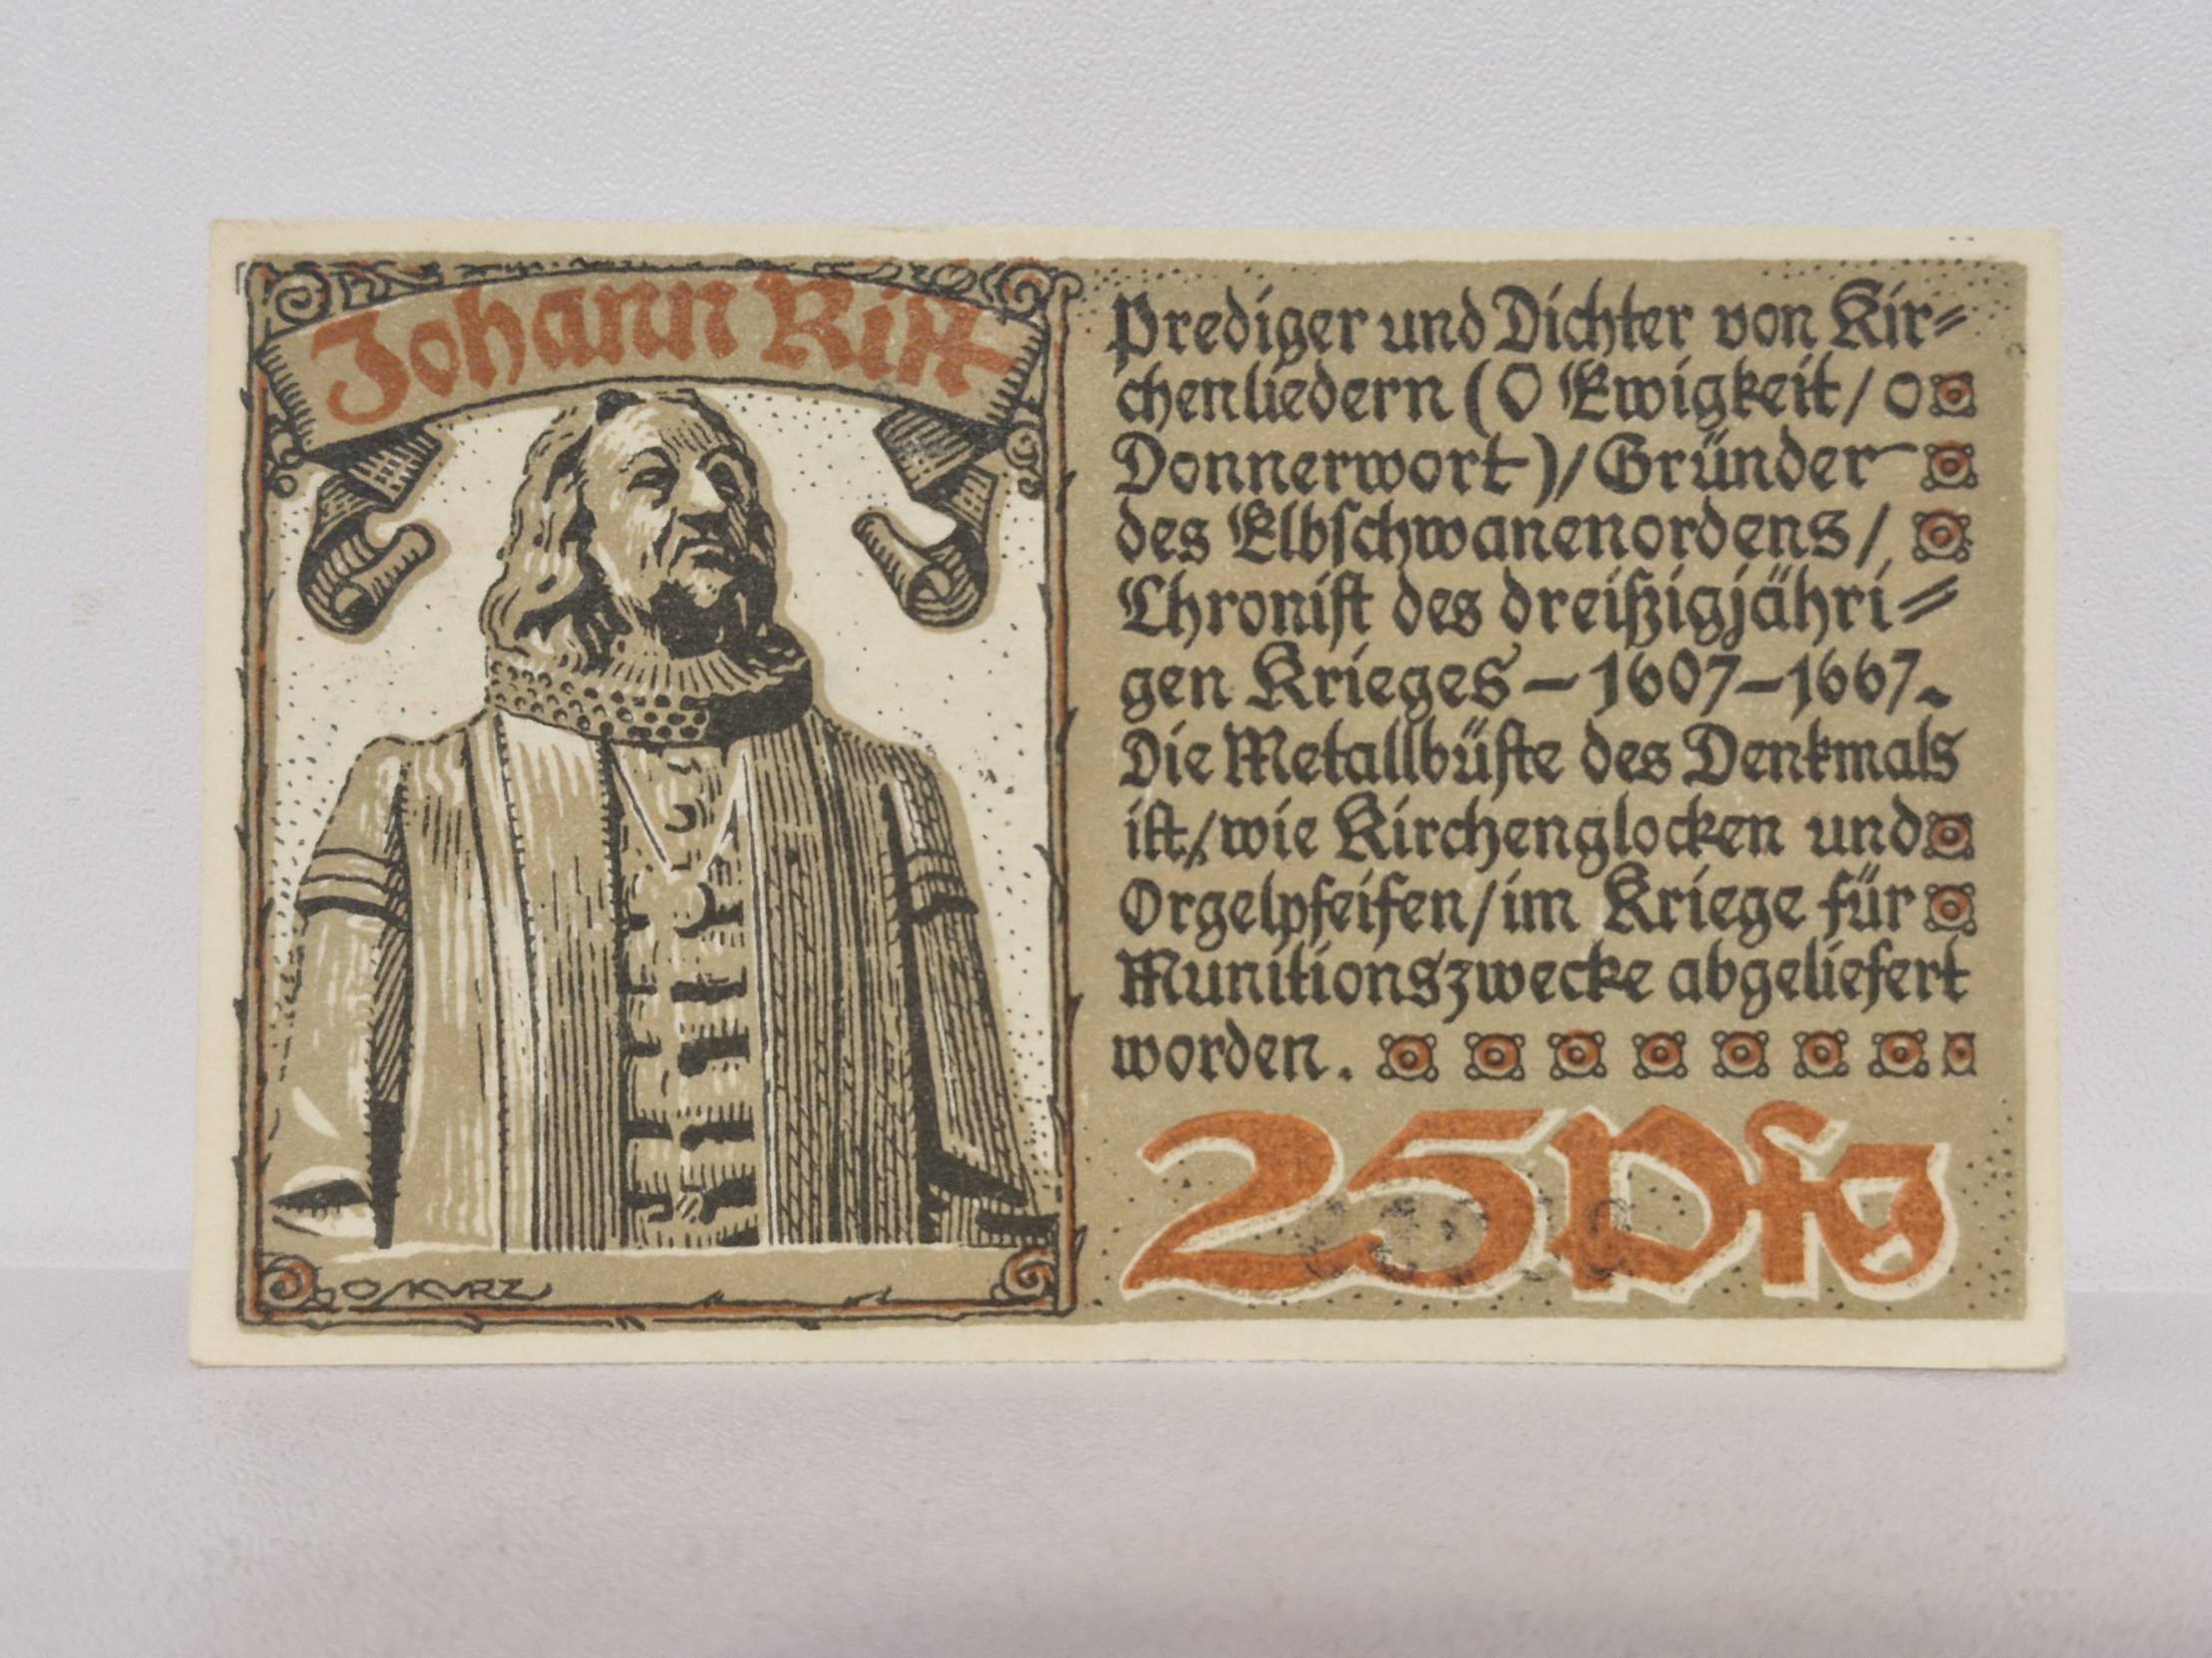 Johann Rist
Prediger und Dichter von Kir=
chenliedern (O Ewigkeit/ o
Donnerwort)/ Gründer
des Elbschwanenordens/
Chronist des dreißigjähri=
gen Krieges – 1607–1667.
Die Metallbüste des Denkmals
ist/ wie Kirchenglocken und
Orgelpfeifen/ im Kriege für
Munitionszwecke abgeliefert
worden.
25 Pfg